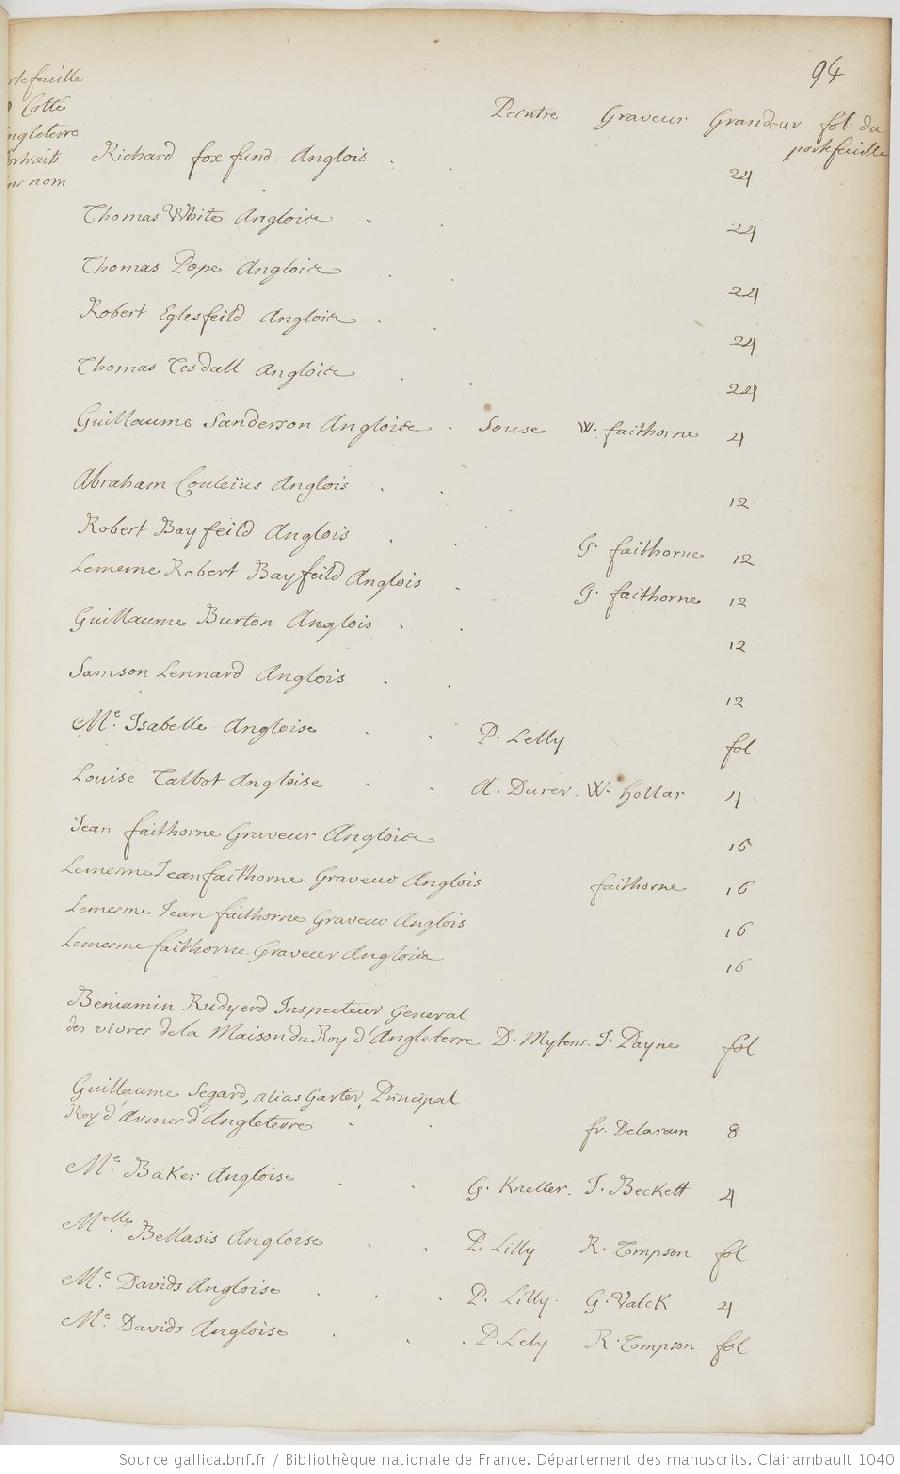 94
Peintre Graveur Grandeur fol. du
portefeuille
rtefeuille
Cotté
ngleterre
ortraits
nom
Richard fox fund. Anglois . 24
Thomas White Anglois . . 24
Thomas Pope Anglois . . 24
Robert Eglesfeild Anglois . . 24
Thomas Tesdall Anglois . . 24
Guillaume Sanderson Anglois . Souse W. faithorne 4
Abraham Couleïus Anglois . . 12
Robert Bayfeild Anglois . . G. faithorne 12
Lememe Robert Bayfeild Anglois . . G. faithorne 12
Guillaume Burton Anglois . . 12
Samson Lennard Anglois . . 12
Me. Isabelle Angloise . . P. Lelly fol
Louise Talbot Angloise . . A. Durer. W. hollar 4
Jean faithorne Graveur Anglois 16
Lemesme Jean faithorne Graveur Anglois faithorne 16
Lemesme Jean faithorne Graveur Anglois 16
Lemesme faithorne Graveur Anglois 16
Beniamin Rudyerd Inspecteur General
des vivres de la Maison du Roy d'Angleterre D. Mytens. J. Payne fol
Guillaume Segard, alias Garter, Principal
Roy d'Armes d'Angleterre . . fr. Delaram 8
Me. Baker Angloise . . G. Kneller. J. Beckett 4
Melle Bellasis Angloise . . P. Lilly R. Tompson fol
Me. Davids Angloise . . . P. Lilly. G. Valck 4
Me. Davids Angloise . . . P. Lely R. Tompson fol
Source gallica.bnf.fr / Bibliothèque nationale de France. Département des manuscrits. Clairambault 1040